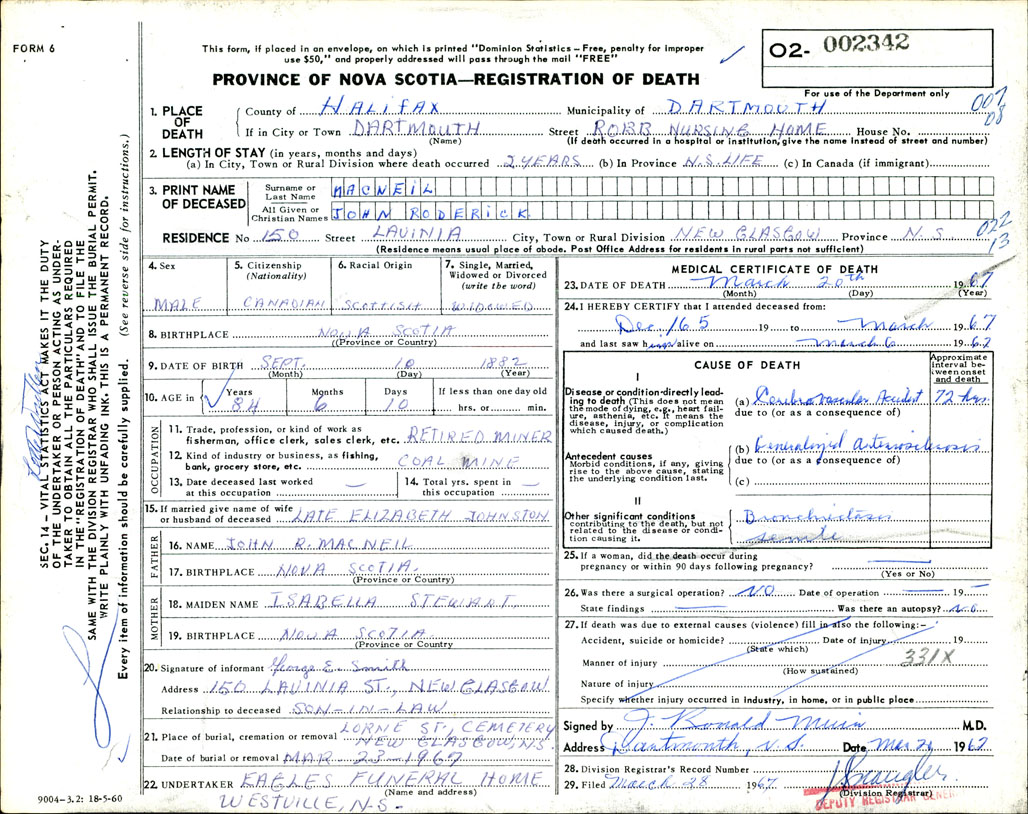 FORM 6
This form, if placed in an envelope, on which is printed "Dominion Statistics – Free, penalty for improper
use $50," and properly addressed will pass through the mail "FREE"
O2- 002342
PROVINCE OF NOVA SCOTIA—REGISTRATION OF DEATH
For use of the Department only
SEC. 14 – VITAL STATISTICS ACT MAKES IT THE DUTY
OF THE UNDERTAKER OR PERSON ACTING AS UNDER-
TAKER TO OBTAIN ALL THE PARTICULARS REQUIRED
IN THE "REGISTRATION OF DEATH" AND TO FILE THE
SAME WITH THE DIVISION REGISTRAR WHO SHALL ISSUE THE BURIAL PERMIT.
WRITE PLAINLY WITH UNFADING INK. THIS IS A PERMANENT RECORD.
Every item of information should be carefully supplied. (See reverse side for instructions.)
1. PLACE OF DEATH
County of HALIFAX Municipality of DARTMOUTH
007
08
If in City or Town DARTMOUTH Street ROBB NURSING HOME House No.
(Name) (If death occurred in a hospital or institution, give the name instead of street and number)
2. LENGTH OF STAY (in years, months and days)
(a) In City, Town or Rural Division where death occurred 2 YEARS (b) In Province N.S. LIFE (c) In Canada (if immigrant)
3. PRINT NAME OF DECEASED
Surname or Last Name MACNEIL
All Given or Christian Names JOHN RODERICK
022
13
RESIDENCE No 150 Street LAVINIA City, Town or Rural Division NEW GLASGOW Province N.S
(Residence means usual place of abode. Post Office Address for residents in rural parts not sufficient)
4. Sex
MALE
5. Citizenship
(Nationality)
CANADIAN
6. Racial Origin
SCOTTISH
7. Single, Married,
Widowed or Divorced
(write the word)
WIDOWED
8. BIRTHPLACE NOVA SCOTIA
(Province or Country)
9. DATE OF BIRTH SEPT. 10 1882
(Month) (Day) (Year)
10. AGE in Years Months Days If less than one day old
84 6 10 hrs. or min.
OCCUPATION
11. Trade, profession, or kind of work as
fisherman, office clerk, sales clerk, etc. RETIRED MINER
12. Kind of industry or business, as fishing,
bank, grocery store, etc. COAL MINE
13. Date deceased last worked
at this occupation —
14. Total yrs. spent in
this occupation —
15. If married give name of wife
or husband of deceased LATE ELIZABETH JOHNSTON
FATHER
16. NAME JOHN R. MACNEIL
17. BIRTHPLACE NOVA SCOTIA
(Province or Country)
MOTHER
18. MAIDEN NAME ISABELLA STEWART
19. BIRTHPLACE NOVA SCOTIA
(Province or Country
20. Signature of informant George E. Smith
Address 150 LAVINIA ST., NEW GLASGOW
Relationship to deceased SON-IN-LAW
21. Place of burial, cremation or removal LORNE ST. CEMETERY
NEW GLASGOW, N.S.
Date of burial or removal MAR 23-1967
22. UNDERTAKER EAGLES FUNERAL HOME
(Name and address)
WESTVILLE, N.S.
9004–3.2: 18-5-60
MEDICAL CERTIFICATE OF DEATH
23. DATE OF DEATH March 20th 1967
(Month) (Day) (Year)
24. I HEREBY CERTIFY that I attended deceased from:
Dec. 165 19 to March 1967
and last saw him alive on March 6 1967
CAUSE OF DEATH
Approximate interval between onset and death
I
Disease or condition directly lead-
ing to death (This does not mean
the mode of dying, e.g., heart fail-
ure, asthenia, etc. It means the
disease, injury, or complication
which caused death.)
(a) Cerebrovascular Accident 72 hrs.
due to (or as a consequence of)
(b) Generalized Arteriosclerosis
due to (or as a consequence of)
(c)
Antecedent causes
Morbid conditions, if any, giving
rise to the above cause, stating
the underlying condition last.
II
Other significant conditions
contributing to the death, but not
related to the disease or condi-
tion causing it.
Bronchiectasis
senile
25. If a woman, did the death occur during
pregnancy or within 90 days following pregnancy? —
(Yes or No)
26. Was there a surgical operation? NO Date of operation — 19 —
State findings — Was there an autopsy? NO
27. If death was due to external causes (violence) fill in also the following:–
Accident, suicide or homicide? Date of injury 19
(State which)
Manner of injury 331X
(How sustained)
Nature of injury
Specify whether injury occurred in industry, in home, or in public place
Signed by J. Ronald Muir M.D.
Address Dartmouth, N.S. Date Mar 21 1967
28. Division Registrar's Record Number
29. Filed March 28 1967
(Division Registrar)
DEPUTY REGISTRAR GENERAL